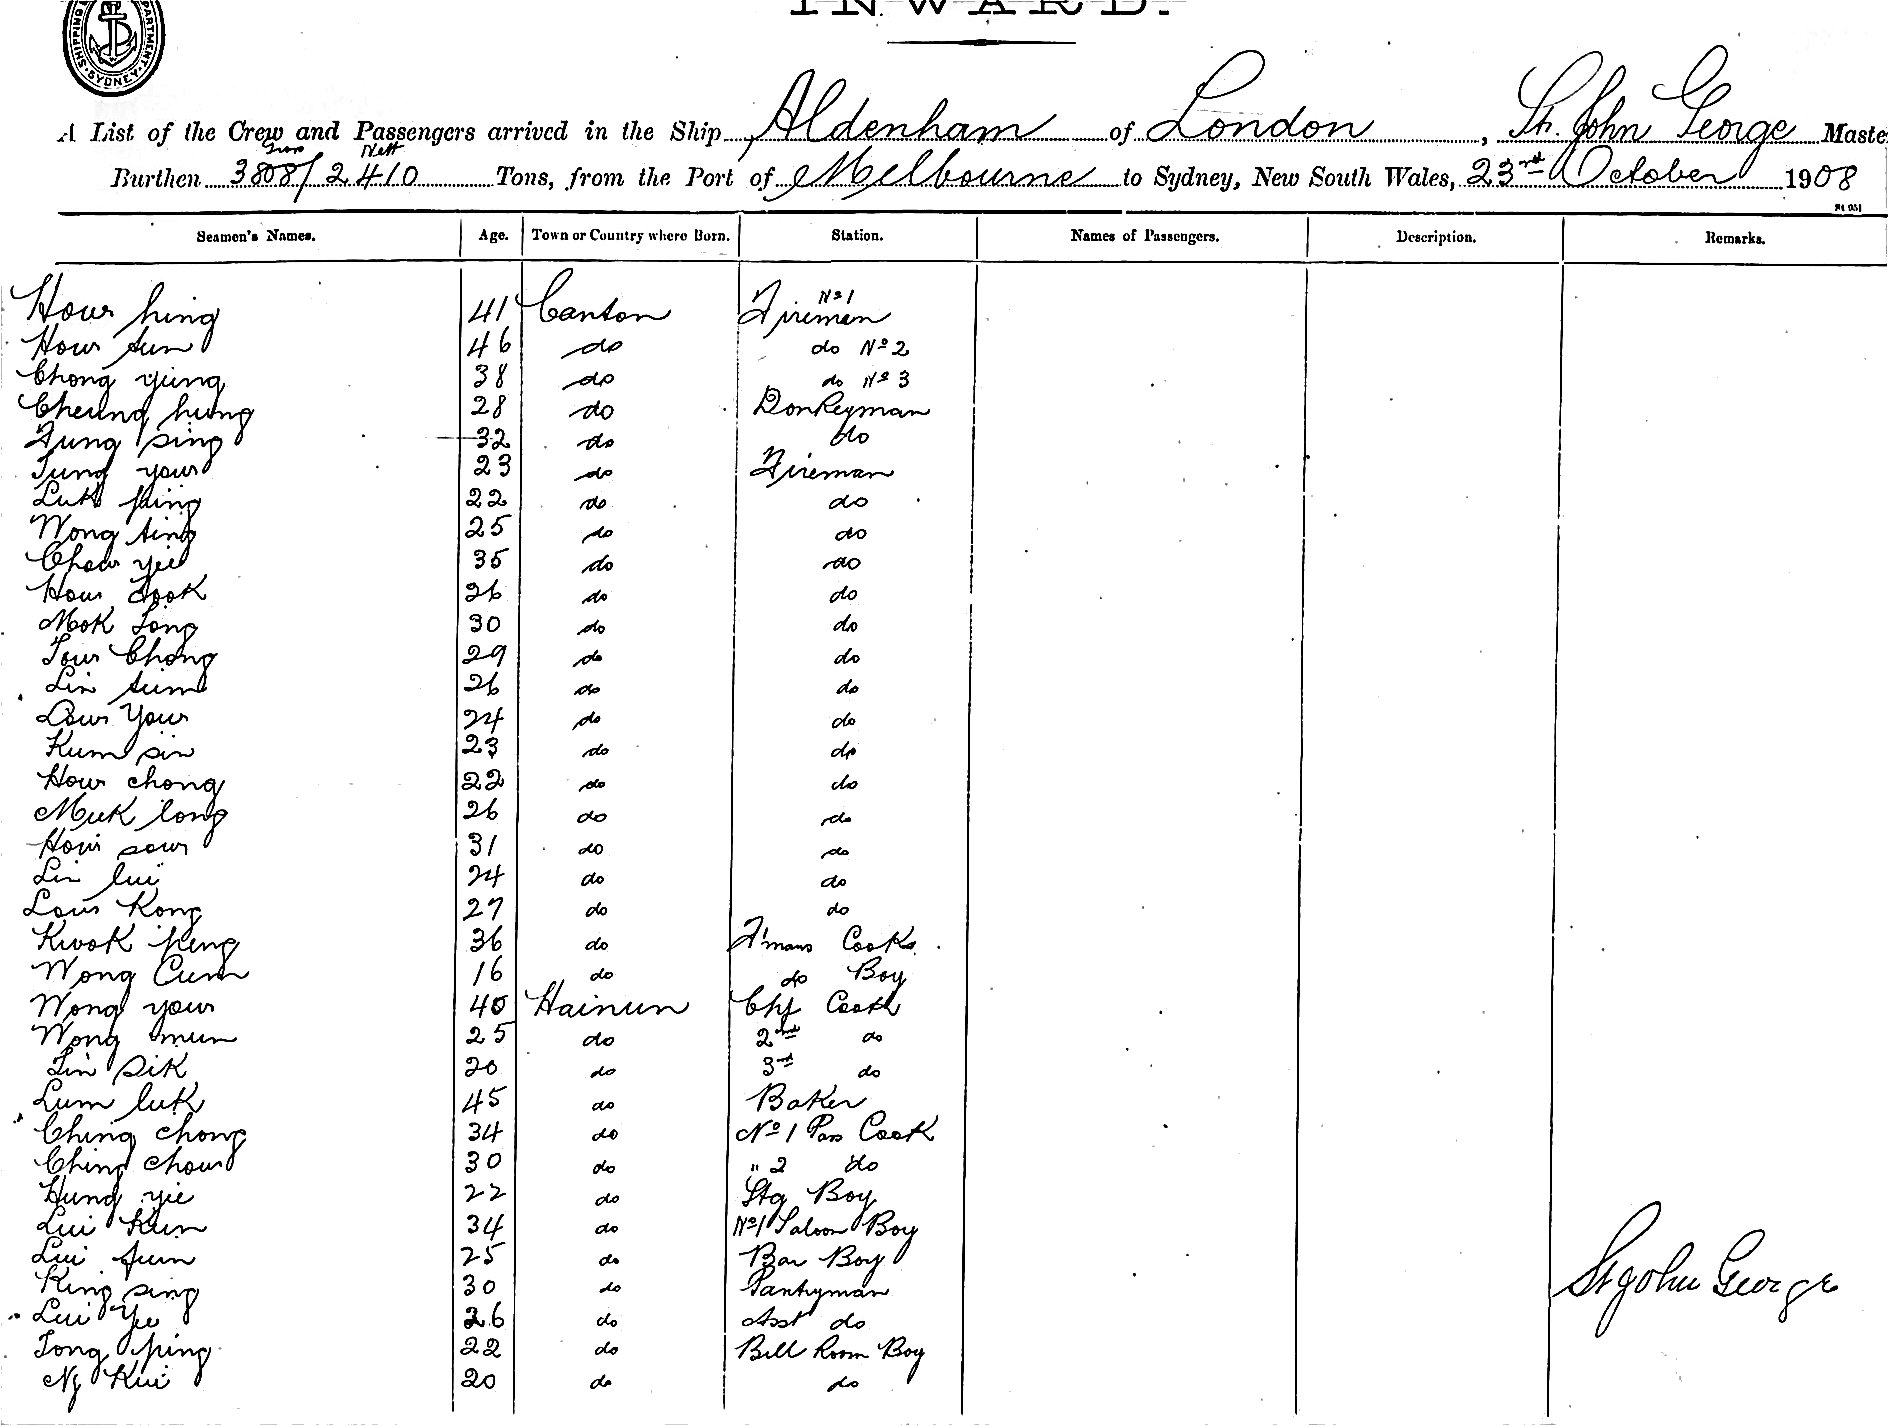 INWARD.
SHIPPING DEPARTMENT SYDNEY
A List of the Crew and Passengers arrived in the Ship Aldenham of London, St. John George Maste
Gross Nett
Burthen 3808/2410 Tons, from the Port of Melbourne to Sydney, New South Wales, 23rd October 1908
Seamen's Names. Age. Town or Country where Born. Station. Names of Passengers. Description. Remarks.
How hing 41 Canton Fireman No 1
How sun 46 do do No 2
Chong yung 38 do do No 3
Cheung hung 28 do Donkeyman
Fung sing 32 do do
Tung your 23 do Fireman
Luk hing 22 do do
Wong ting 25 do do
Chow yie 35 do do
How Took 26 do do
Mok Tong 30 do do
Tow Chong 29 do do
Lin sum 26 do do
Low Your 24 do do
Kum sin 23 do do
How chong 22 do do
Muk long 26 do do
How sow 31 do do
Lin lui 24 do do
Low Kong 27 do do
Kwok keng 36 do F'mans Cook
Wong Cum 16 do do Boy
Wong your 40 Hainun Chf Cook
Wong mun 25 do 2nd do
Lin Sik 20 do 3rd do
Lum luk 45 do Baker
Ching chong 34 do No 1 Pas Cook
Ching chow 30 do " 2 do
Hung yie 22 do Stg Boy
Lui Kun 34 do No 1 Saloon Boy
Lui fun 25 do Bar Boy
King sing 30 do Pantryman
Lui Yee 26 do Asst do
Tong hing 22 do Bell Room Boy
Ng Kui 20 do do
St John George